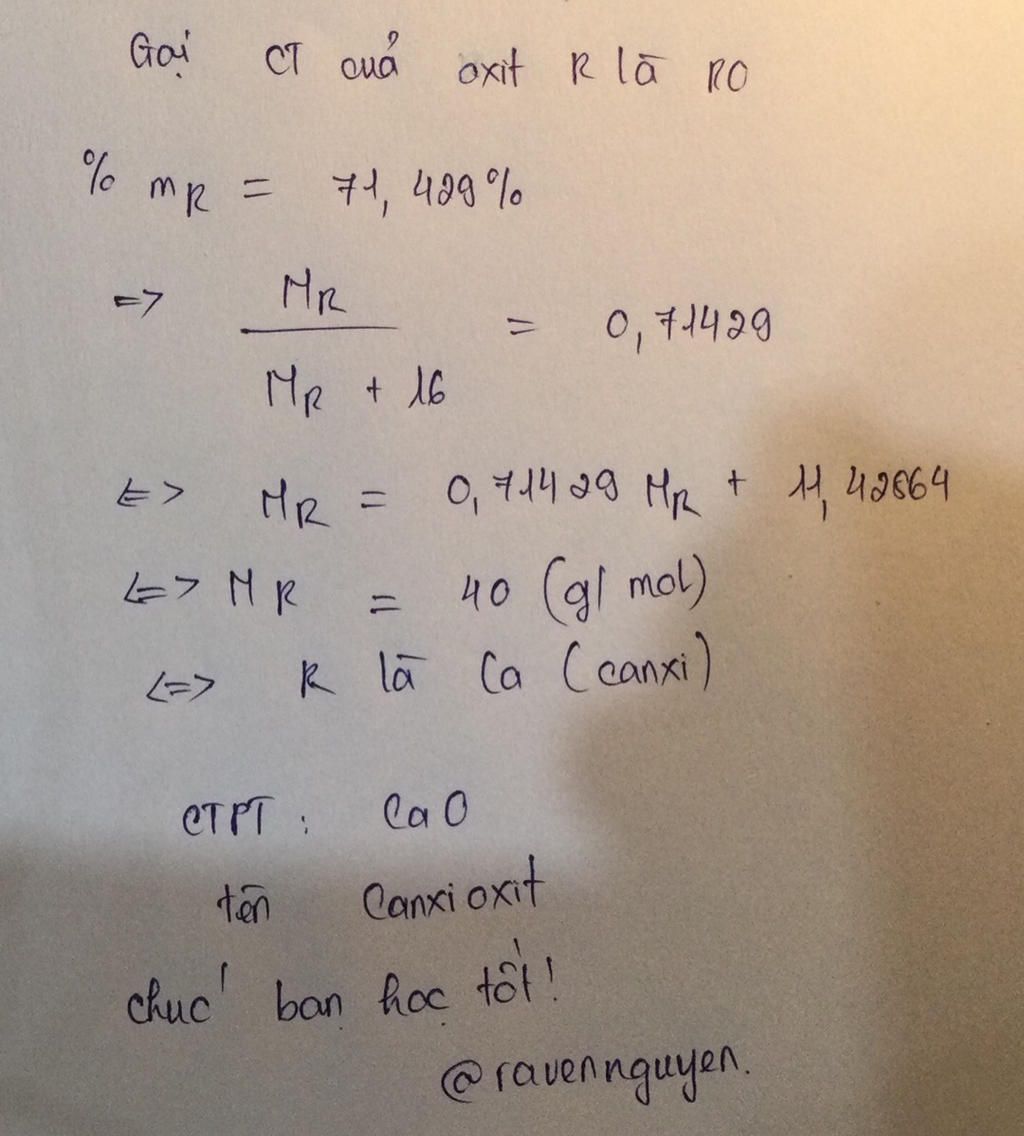 Gọi CT cuả oxit R là RO
% mR = 71,429%
=> MR / MR + 16 = 0,71429
<=> MR = 0,71429 MR + 11,42864
<=> MR = 40 (g/mol)
<=> R là Ca (canxi)
CTPT : CaO
tên Canxi oxit
chuc' bạn học tốt!
@ravennguyen.